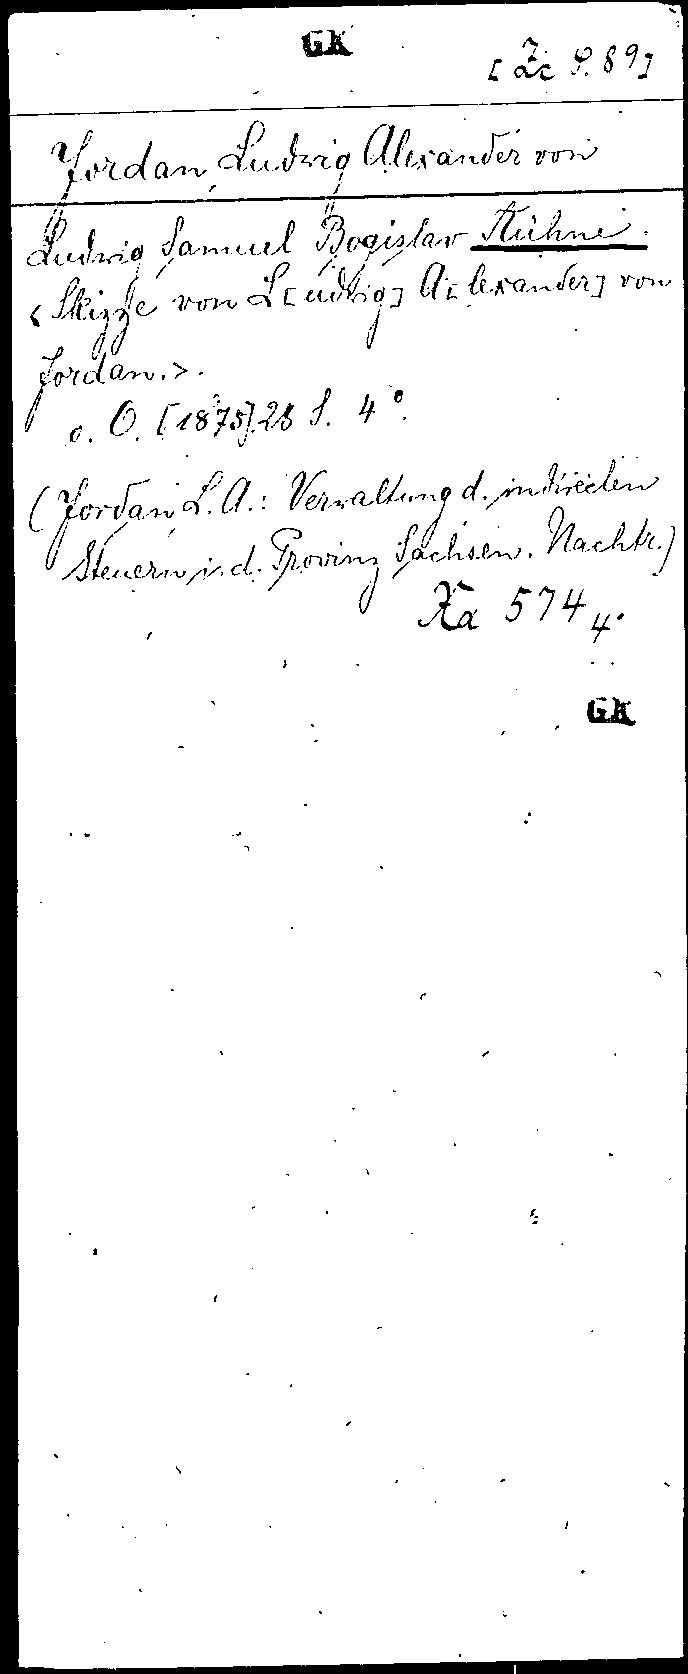 GK
[Zc S. 89]
Jordan, Ludwig Alexander von
Ludwig Samuel Bogislav Kühne.
<Skizze von L[udwig] A[lexander] von
Jordan.>.
o. O. [1875] 28 S. 4°.
(Jordan, L. A.: Verwaltung d. indirecten
Steuern i. d. Provinz Sachsen. Nachtr.)
Xa 574 4°
GK